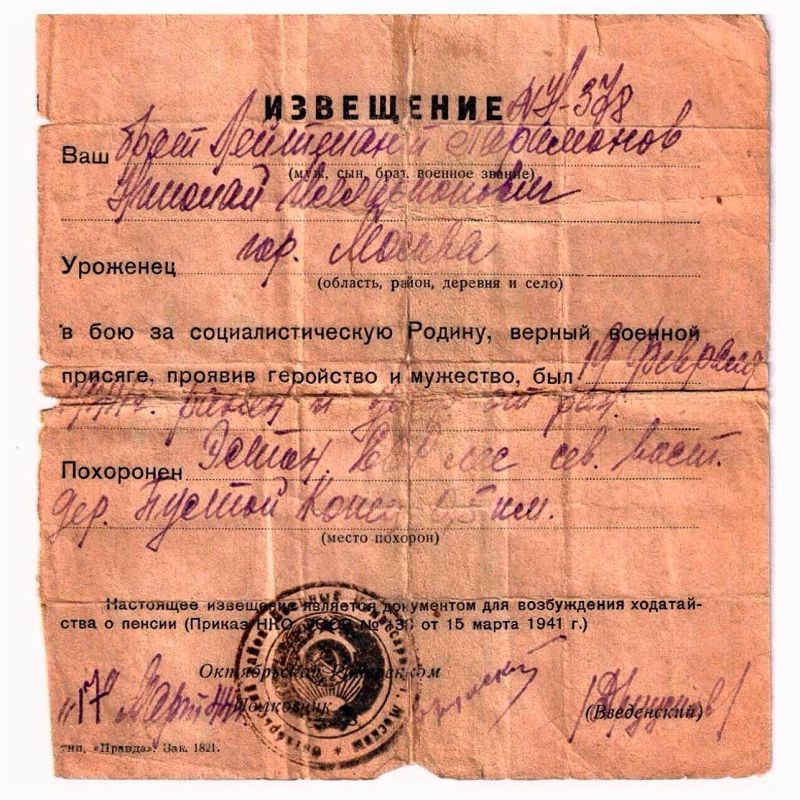 ИЗВЕЩЕНИЕ №Н-378
Ваш брат Лейтенант Паримонов
(муж, сын, брат, военное звание)
Николай
гор. Москва
Уроженец
(область, район, деревня и село)
в бою за социалистическую Родину, верный военной
присяге, проявив геройство и мужество, был 19 февраля
ранен и
Похоронен Эстон. лес сев. васт.
дер. Пустой Конец 0,5 км.
(место похорон)
Настоящее извещение является документом для возбуждения ходатай-
ства о пенсии (Приказ НКО СССР № 138 от 15 марта 1941 г.)
Октябрьский
"17" Март Полковник
(Введенский)
тип. «Правда». Зак. 1821.